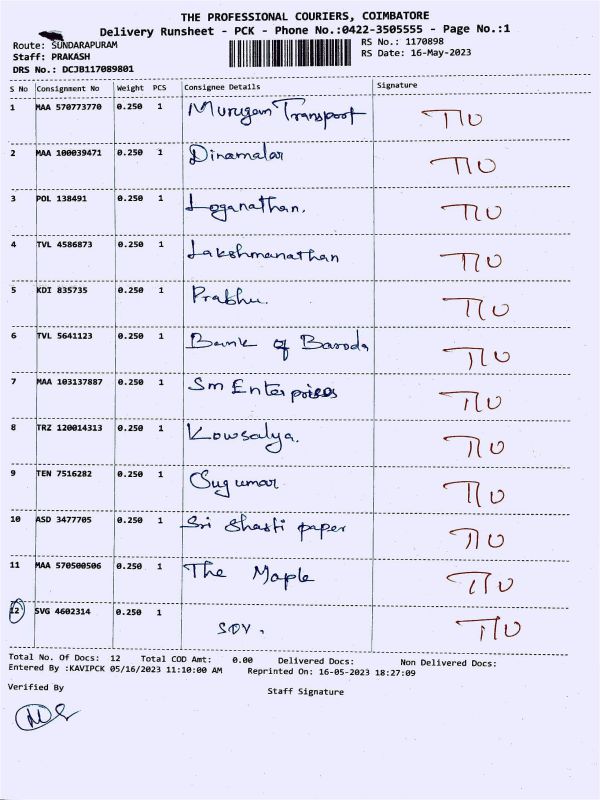 THE PROFESSIONAL COURIERS, COIMBATORE
Delivery Runsheet - PCK - Phone No.:0422-3505555 - Page No.:1
Route: SUNDARAPURAM
RS No.: 1170898
Staff: PRAKASH
RS Date: 16-May-2023
DRS No.: DCJB117089801
S No Consignment No Weight PCS Consignee Details Signature
1 MAA 570773770 0.250 1 Murugan Transport
2 MAA 100039471 0.250 1 Dinamalar
3 POL 138491 0.250 1 Loganathan.
4 TVL 4586873 0.250 1 Lakshmanathan
5 KDI 835735 0.250 1 Prabhu.
6 TVL 5641123 0.250 1 Bank of Baroda
7 MAA 103137887 0.250 1 Sm Enterprises
8 TRZ 120014313 0.250 1 Kowsalya.
9 TEN 7516282 0.250 1 Sugumar
10 ASD 3477705 0.250 1 Sri Shasti paper
11 MAA 570500506 0.250 1 The Maple
12 SVG 4602314 0.250 1
Total No. Of Docs: 12 Total COD Amt: 0.00 Delivered Docs: Non Delivered Docs:
Entered By :KAVIPCK 05/16/2023 11:10:00 AM Reprinted On: 16-05-2023 18:27:09
Verified By
Staff Signature